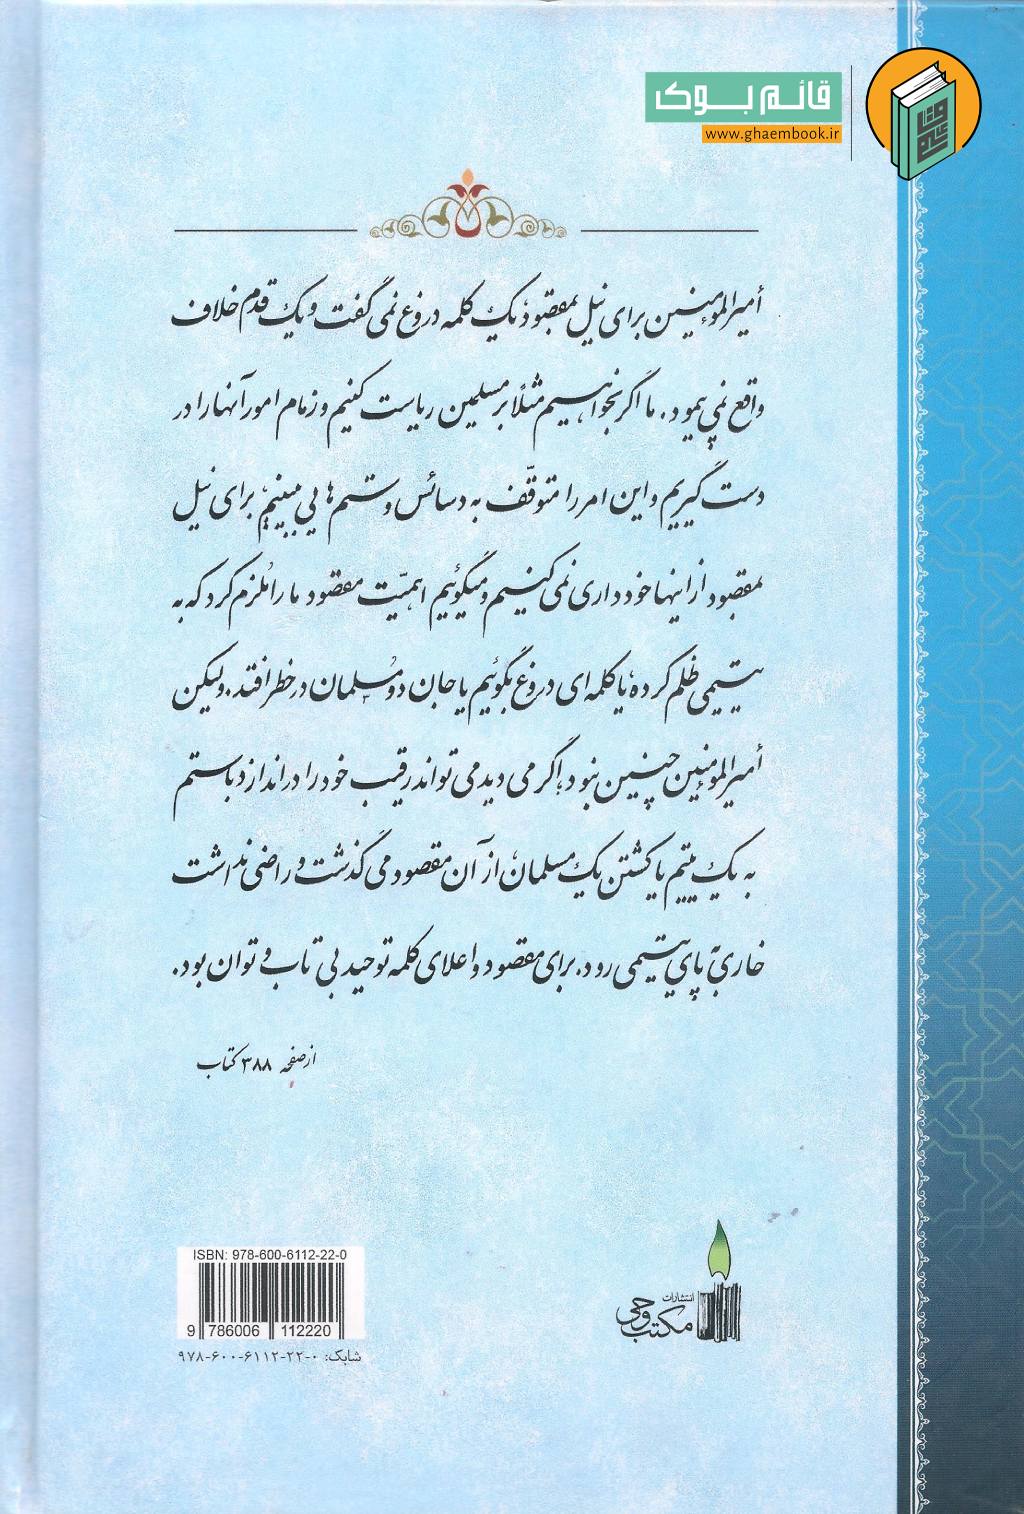 قائم بوک
www.ghaembook.ir
أمیرالمؤمنین برای نیل بمقصود، یک کلمه دروغ نمی گفت و یک قدم خلاف
واقع نمی پیمود. ما اگر بخواهیم مثلاً بر مسلمین ریاست کنیم و زمام امور آنها را در
دست گیریم و این امر را متوقّف به دسائس و ستم هایی ببینیم، برای نیل
بمقصود از اینها خودداری نمی کنیم و میگوئیم اهمیّت مقصود ما را مُلزم کرد که به
یتیمی ظلم کرده، یا کلمه ای دروغ بگوئیم یا جان دو مُسلمان در خطر افتد. ولیکن
أمیرالمؤمنین چنین نبود، اگر می دید می تواند رقیب خود را در اندازد با ستم
به یک یتیم یا کشتن یک مسلمان، از آن مقصود می گذشت و راضی نداشت
خاری به پای یتیمی رود. برای مقصود و اعلای کلمه توحید بی تاب و توان بود.
از صفحه ۳۸۸ کتاب
ISBN: 978-600-6112-22-0
9 786006 112220
شابک: ۹۷۸-۶۰۰-۶۱۱۲-۲۲-۰
انتشارات
مکتب وحی